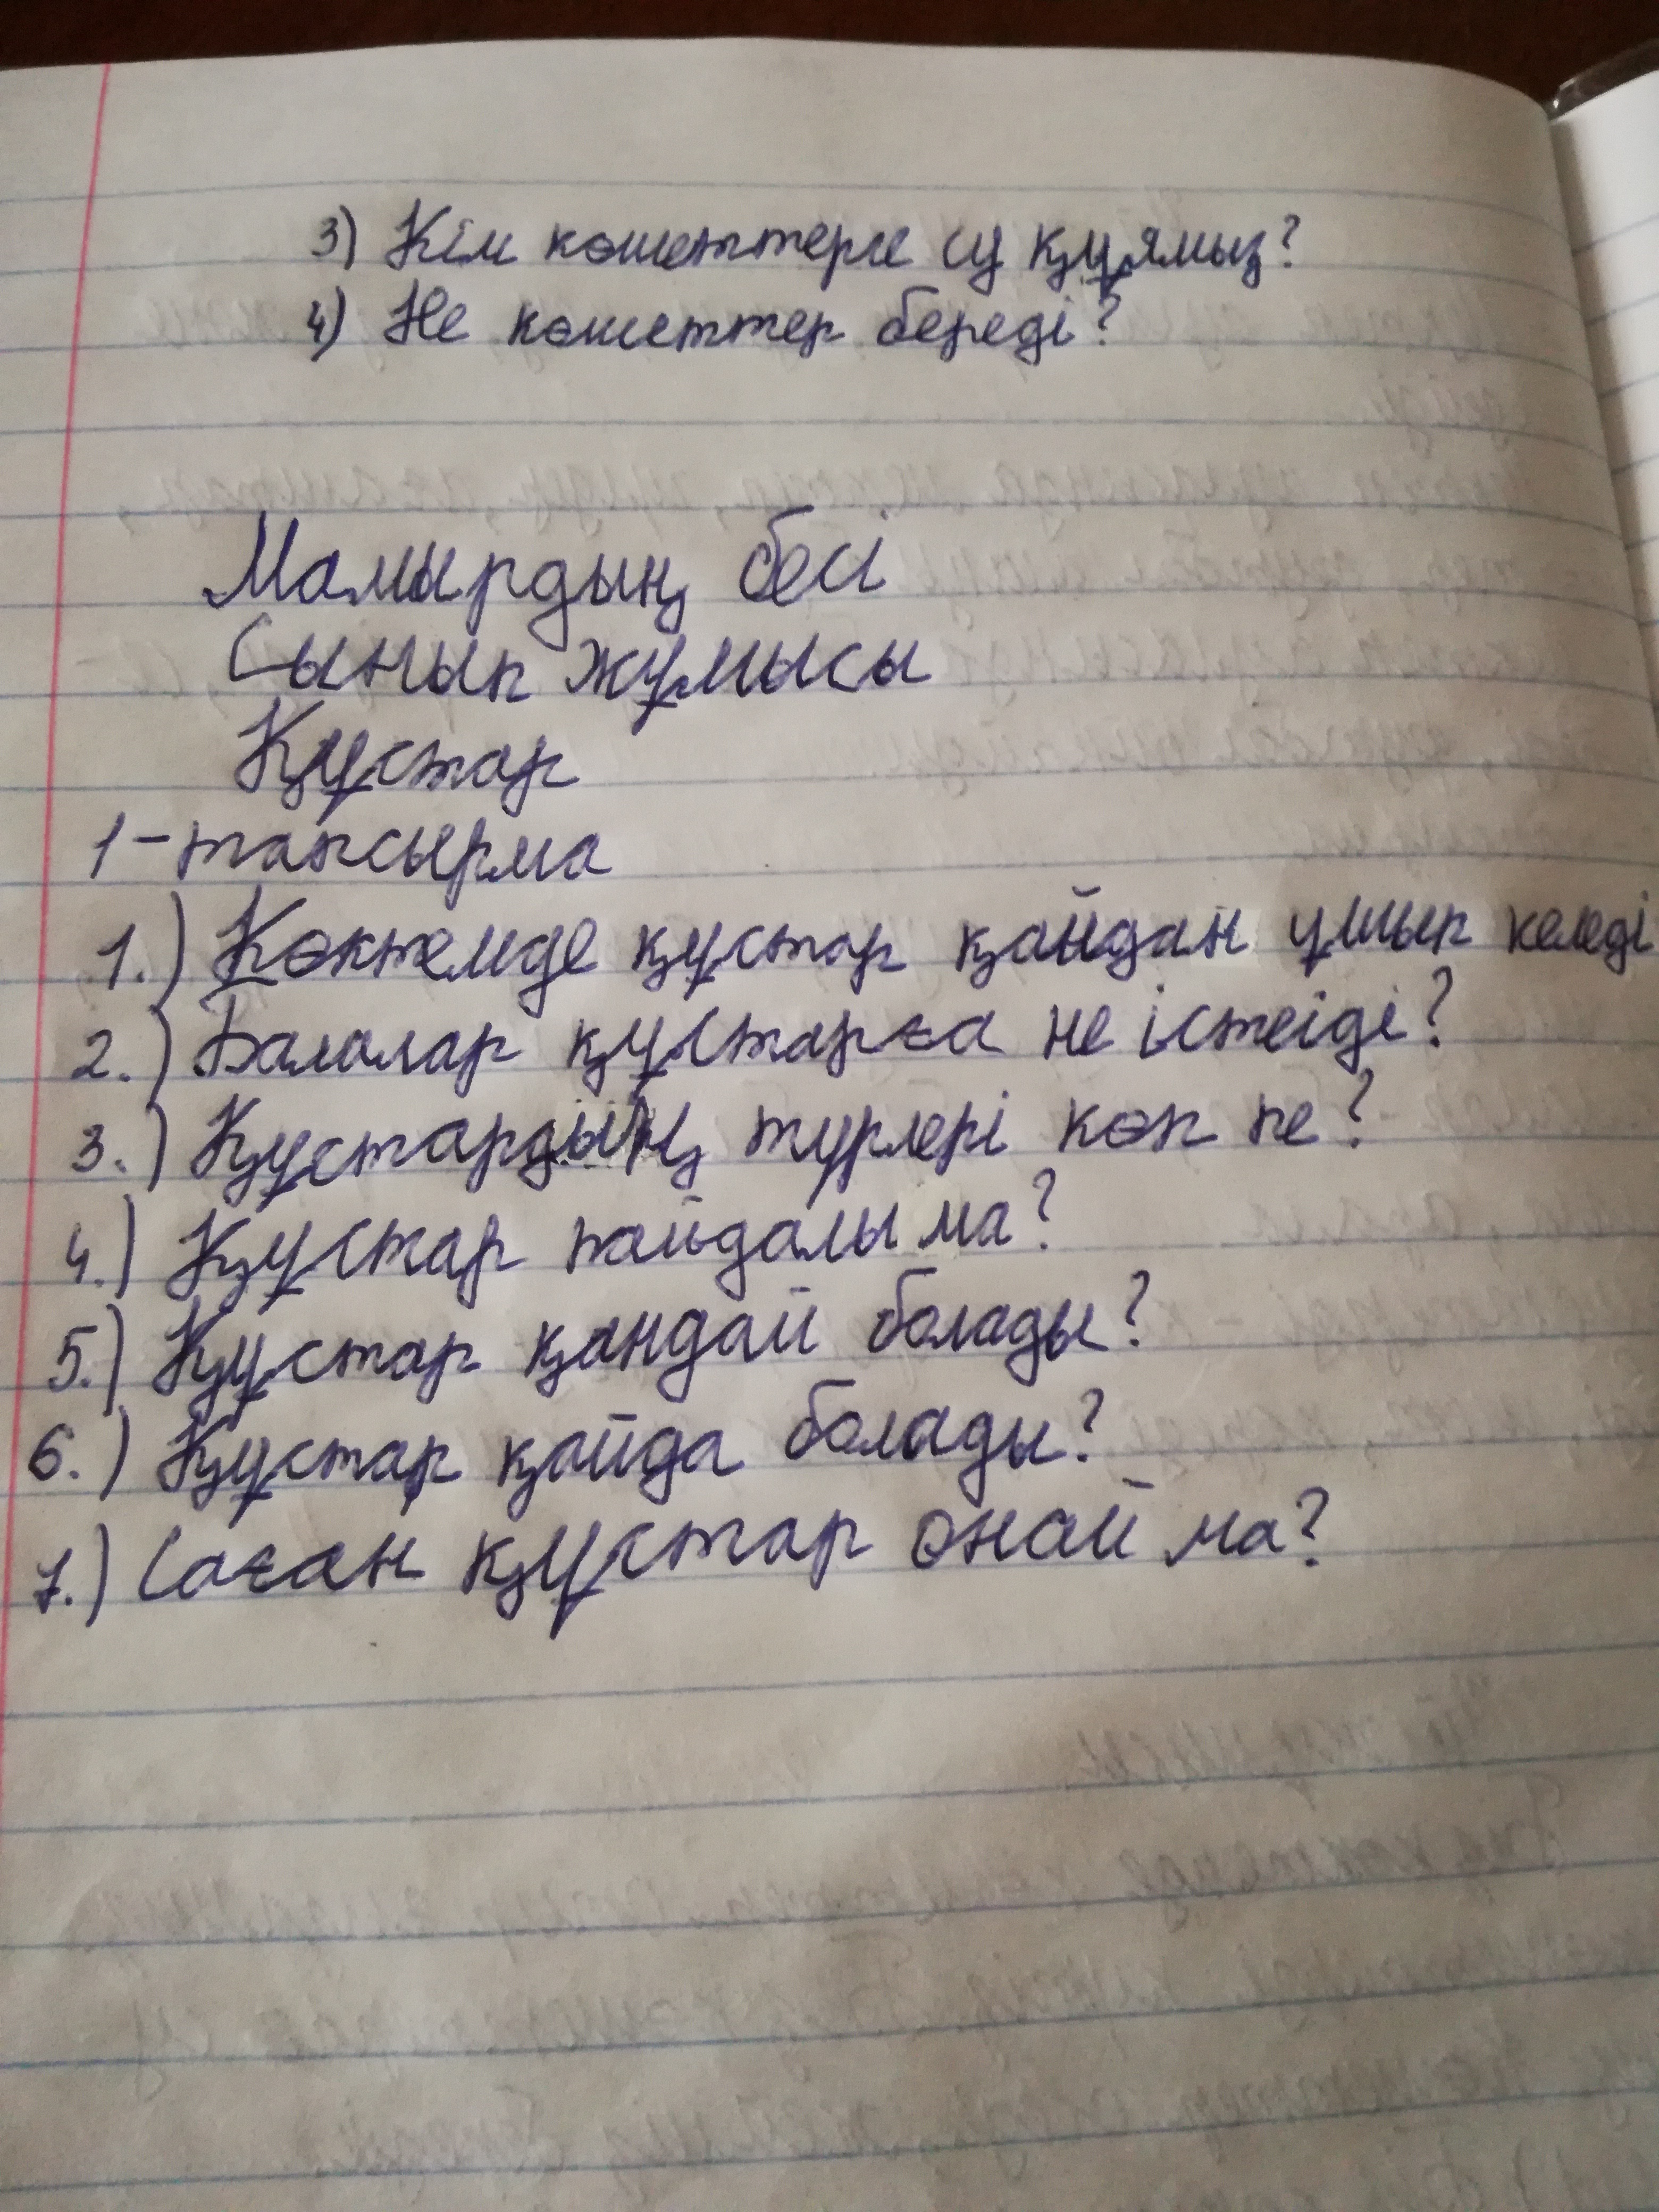 3) Кім көшеттерге су құямыз?
4) Не көшеттер береді?
Мамырдың бесі
Сынып жұмысы
Құстар
1-тапсырма
1.) Көктемде құстар қайдан ұшып келеді
2.) Балалар құстарға не істейді?
3.) Құстардың түрлері көп пе?
4.) Құстар пайдалы ма?
5.) Құстар қандай болады?
6.) Құстар қайда болады?
7.) Саған құстар ұнай ма?